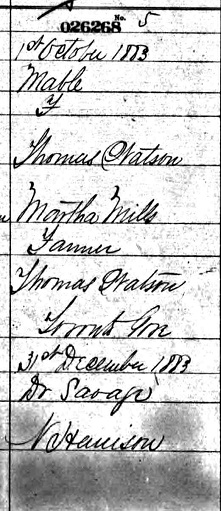 026268 No. 5
1st October 1883
Mable
F
Thomas Watson
Martha Mills
Farmer
Thomas Watson
Toronto Gore
31st December 1883
Dr Savage
N Harrison